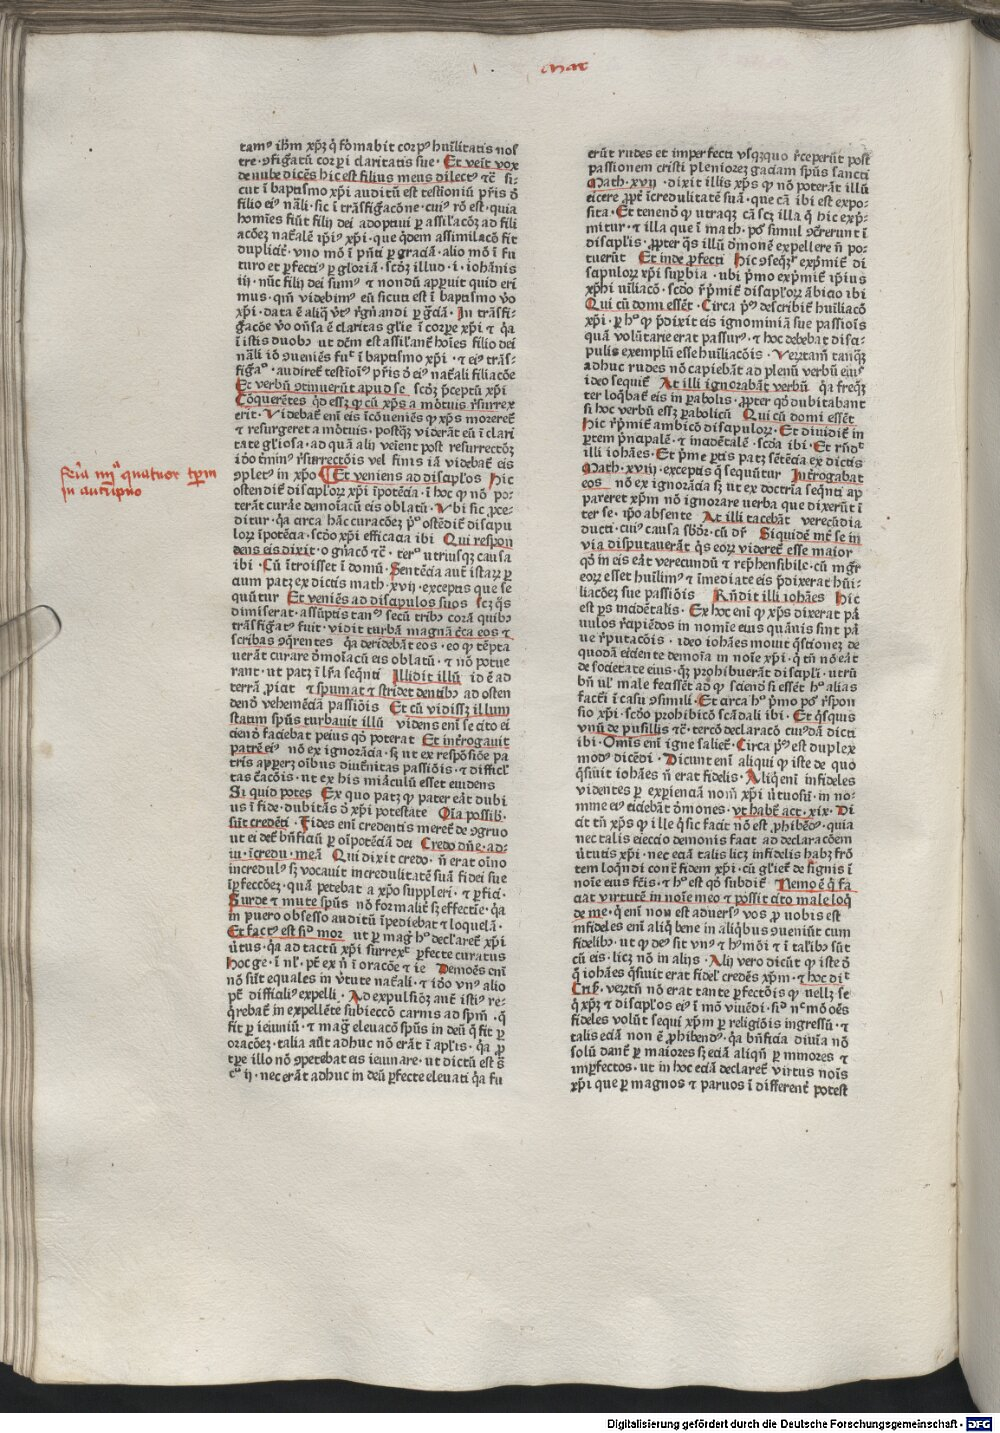 Mar
tamꝰ ihm xp̄ꝫ q̇ fo̊mabit corpꝰ huīlitatis nos
tre ꝯfigatū corpi claritatis sue · Et veīt vox
de nube dicēs hic est filius meus dilectꝰ ⁊c̄ si-
cut ī baptismo xp̄i auditū est testioniū pr̄is ō
filio eiꝰ nāli · sic ī trāsfigacōne · cuiꝰ rō est · quia
homīes fiūt filij dei adoptiui ꝑ assilʼacōꝫ ad fili
acōeꝫ nat̓alē ipiꝰ xp̄i · que q̇dem assimilacō fit
duplicit̓ · vno mō ī pn̄ti ꝑ graciā · alio mō ī fu
turo et ꝑfectiꝰ ꝑ gloriā · scd̓ꝫ illud · i · iohānis
iij · nūc filij dei sumꝰ ⁊ nondū apparuit quid eri
mus · qm̄ videbimꝰ eū sicuti est ī baptismo v̊o
xp̄i · data ē aliq̇ v̓tꝰ rḡn̄andi ꝑ gr̄ciā · In trāsfi-
g̓acōe v̊o on̄sa ē claritas gl̓ie ī corꝑe xp̄i ⁊ q̇a
ī istis duobꝫ ut dēm est assilʼant̓ hoīes filio dei
nāli iō ꝯueniēs fuᵗ ī baptismo xp̄i · ⁊ eiꝰ trās-
fig̓aᵉ · audiret̓ testioīꝰ pr̄is ō eiꝰ nat̓ali filiacōe
Et verbū ꝯtinuerūt apud se scd̓ꝫ p̄ceptū xp̄i
Cōquerētes qd̓ essꝫ ꝙ cū xp̄s a mōtuis rʼsurrex
erit · Videbat̓ eni eis īcōueniēs ꝙ xp̄s moreret̓
⁊ resurgeret a mōtuis · postqꝫ viderāt eū ī clari
tate gl̓iosa · ad quā alij veīent post resurrectōꝫ
iō̊o tm̄inꝰ rʼsurrectōis vel finis iā videbat̓ eis
ꝯpletꝰ in xp̄o ¶ Et veniens ad discipl̓os Hic
ostendit̓ discipl̓oꝝ xp̄i īpotēcia · ī hoc ꝙ nō po-
terāt curare demoīacū eis oblatū · Vbi sic ꝓce-
ditur · q̇a circa hāc curacōeꝫ pº ostēdit̓ discipu
loꝝ īpotēcia · scd̊o xp̄i efficacia ibi Qui respon
dens eis dixit · o gn̄acō ⁊c̄ · terº utriusqꝫ causa
ibi · Cū ītroisset ī domū · Sentēcia aut̄ istaꝝ ꝑ
cium patꝫ ex dictis math · xvij · exceptis que se
quūtur Et veniēs ad discipulos suos scꝫ q̇s
dimiserat · assūptis tanº secū tribꝫ corā quibꝫ
trāsfig̓atꝰ fuit · vidit turbā magnā c̓ca eos ⁊
scribas ꝯq̇rentes q̇a deridebāt eos · eo ꝙ tēpta
uerāt curare dʼmoīacū eis oblatū · ⁊ nō potue
rant · ut patꝫ ī lr̄a seq̇nti Illidit illū id ē ad
terrā ꝓicit ⁊ spumat ⁊ stridet dentibꝫ ad osten
denō vehemēciā passiōis Et cū vidissꝫ illum
statim spūs turbauit illū videns eni se cito ei
ciendʼ faciebat peius qd̓ poterat Et int̓rogauit
patrē eiꝰ nō ex ignorācia · sꝫ ut ex respōsiōe pa
tris aꝑerꝫ oībus diut̓nitas passiōis · ⁊ difficlʼ
tas c̓acōis · ut ex his miāculū esset euidens
Si quid potes Ex quo patꝫ ꝙ pater eāt dubi
us ī fide · dubitās ō xp̄i potestate Oīa possib̓-
sūt credēti · Fides enī credentis meret̓ de ꝯgruo
ut ei det̓ bn̄ficiū ꝑ oīpotēciā dei Credo dn̄e · ad-
iu · īcredu · meā Qui dixit credo · n̄ erat oīno
incredulꝰ sꝫ vocauit incredulitatē suā fidei sue
īꝑfeccōeꝫ · quā petebat a xp̄o suppleri · ⁊ ꝑfici ·
Surde ⁊ mute spūs nō formalit̓ sꝫ effectīe · q̇a
in puero obsesso auditū īpediebat ⁊ loquelā ·
Et factꝰ est sic̄ mor ut ꝑ mag̓ hº declʼaret̓ xp̄i
v̓tus · q̇a ad tactū xp̄i surrexᵗ ꝑfecte curatus
Hoc ge · ī nl̓ · pt̄ ex n̄ ī oracōe ⁊ ie Demōes enī
nō sūt equales in v̓tute nat̓ali · ⁊ iō̊o vnꝰ alio
pt̄ difficiliꝰ expelli · Ad expulsiōꝫ ant̄ istiꝰ re-
q̓rebat̓ in expellēte subieccō carnis ad spm̄ · q̇
fit ꝑ ieiuniū · ⁊ mag̓ eleuacō spūs in deū q̇ fit ꝑ
oracōeꝫ · talia aūt adhuc nō erāt ī apl̓is · q̇a ꝓ
tꝑe illo nō ꝯpetebat eis ieiunare · ut dictū est s̄
cº ij · nec erāt adhuc in deū ꝑfecte eleuati q̇a fu
feria iiijᵃ quatuor tꝑm
in autūpno
erūt rudes et imperfecti vsqꝫquo rʼceperūt post
passionem cristi pleniorēꝫ gaciam spūs sancti
Math · xvij · dixit illis xp̄s ꝙ nō poterāt illū
eicere ꝓpt̓ īcredulitatē suā · que cā ibi est expo-
sita · Et tenenō ꝙ utraqꝫ cā scꝫ illa q̇ hic exp̄-
mitur · ⁊ illa que ī math · pº simul ꝯc̓rerunt ī
discipl̓is · ꝓpter q̇s illū dʼmonē expellere n̄ po-
tuerūt Et inde ꝓfecti Hic ꝯseqꝫr̓ exp̄mit̓ di
scipuloꝝ xp̄i supbia · ubi p̄mo exp̄mit̓ ipius
xp̄hi uīliacō · scd̊o rʼp̄mit̓ discipl̓oꝝ ābicio ibi
Qui cū domi essēt · Circa pº describit̓ huīliacō
xp̄i · ꝑ hº ꝙ p̄dixit eis ignominiā sue passiois
quā volūtarie erat passurꝰ · ⁊ hoc debebat disci-
pulis exemplū esse huīliacōis · Veꝝtam̄ tanqꝫ
adhuc rudes nō capiebāt ad plenū verbū eiuꝰ
ideo sequit̓ At illi ignorabāt verbū q̇a freq̓ꝫ
ter loq̓bat̓ eis in ꝑabolis · ꝓpter qd̓ dubitabant
si hoc verbū essꝫ ꝑabolicū Qui cū domi essēt
Hic rʼp̄mit̓ ambicō discipuloꝝ · Et diuidit̓ in
ꝑtem p̄ncipalē · ⁊ incidētalē · scd̊a ibi · Et rn̄dᵗ
illi iohāes · Et p̄me ꝑtis patꝫ sētēcia ex dictis
Math · xviij · exceptis q̇ sequūtur Int̓rogabat
eos nō ex ignorācia sꝫ ut ex doctrīa seq̇nti ap
pareret xp̄m nō ignorare verba que dixerūt ī
ter se · ip̊o absente At illi tacebāt verecūdia
ducti · cuiꝰ causa sbd̓r · cū dr̄ Siquidē int̓ se in
via disputauerāt q̇s eoꝝ videret̓ esse maior
qd̓ in eis eāt verecundū ⁊ rep̄hensibile · cū mg̓r
eoꝝ esset huīlimꝰ ⁊ imediate eis p̄dixerat hūi-
liacōeꝫ sue passiōis Rn̄dit illi iohāes Hic
est ꝑs incidētalis · Ex hoc eni ꝙ xp̄s dixerat pa̓
uulos rʼcipiēdos in nomīe eius quāuis sint pa̓
ue rʼputacōis · ideo iohāes mouit q̇stioneꝫ de
quodā eiciente demoīa in noīe xp̄i · q̇ tn̄ nō eāt
de societate eius · q̇ꝫ prohibuerāt discipl̓i · utrū
bn̄ ul̓ male fecissēt ad q̇ sciendʼ si essēt hº alias
factʼi ī casu ꝯsimili · Et circa hº p̄mo poʼ rʼspon
sio xp̄i · scd̊o prohibicō scādali ibi · Et q̇squis
vnū de pusillis ⁊c̄ · tercō declacō cuiꝰdā dicti
ibi · Omīs enī igne saliet̓ · Circa pº est duplex
modꝰ dicēdi · Dicunt eni aliqui ꝙ iste de quo
q̇siuit iohāes n̄ erat fidelis · Aliq̇ enī infideles
videntes ꝑ exꝑienciā nom̄ xp̄i v̓tuosū · in no-
mine eiꝰ eiciebāt dʼmones · vt habet̓ act · xix · Di
cit tn̄ xp̄s ꝙ ille q̇ sic facit nō est ꝓhibēdꝰ · quia
nec talis eieccio demonis facit ad declaracōem
v̓tutis xp̄i · nec eciā talis licꝫ infidelis habꝫ frō
tem loq̇ndi conᵉ fidem xp̄i · cū gl̓iet̓ de signis ī
noīe eius fc̄is · ⁊ hº est qd̓ subdit̓ Nemo ē q̇ fa
ciat virtutē in noīe meo ⁊ possit cito male loq̇
de me · q̇ enī non est aduersꝰ vos ꝓ uobis est
infideles enī aliq̇ bene in aliq̇bus ꝯueniūt cum
fidelibꝫ · ut ꝙ deꝰ sit vnꝰ ⁊ hꝰmōi ⁊ ī talibꝫ sūt
cū eis · licꝫ nō in alijs · Alij vero dicūt ꝙ iste ō
q̇ iohāes q̇siuit erat fidelʼ credēs xp̄m · ⁊ hoc diᵗ
Cris̓ · veꝝtn̄ nō erat tante ꝑfectōis ꝙ nellꝫ se
q̇ xp̄ꝫ ⁊ discipl̓os eiꝰ ī mō viuēdi · sicʼ nᶜ mō oēs
fideles volūt sequi xp̄m ꝑ religiōis ingressū · ⁊
talis eciā non ē ꝓhibendꝰ · q̇a bn̄ficia diuīa nō
solū dant̓ ꝑ maiores sꝫ eciā aliqn̄ ꝑ minores ⁊
imꝑfectos · ut in hoc eciā declaret̓ virtus noīs
xp̄i que ꝑ magnos ⁊ paruos ī different̓ potest
Digitalisierung gefördert durch die Deutsche Forschungsgemeinschaft - DFG